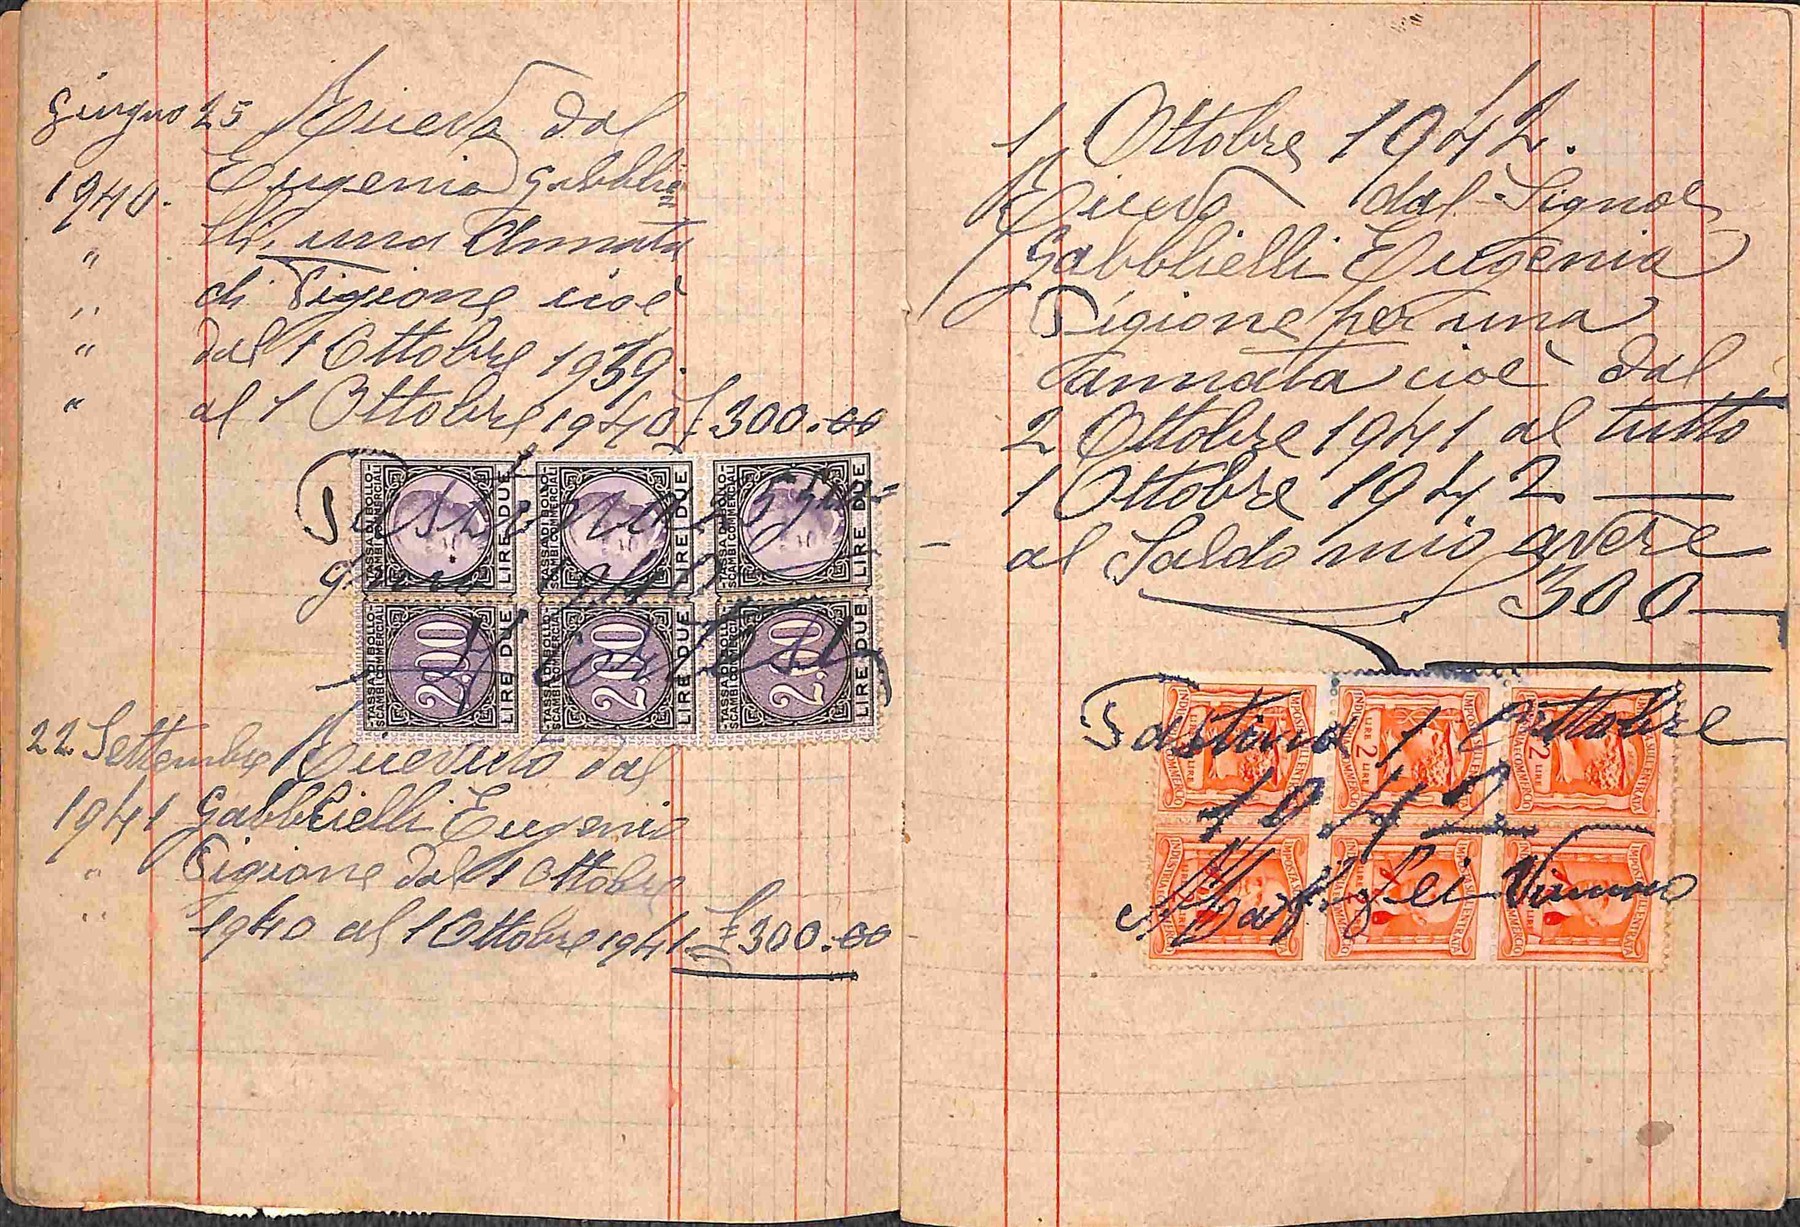 Giugno 25 Ricevo dal
1940. Eugenia Gabblie=
" lli, una Annata
" di Pigione cioè
" dal 1 Ottobre 1939.
" al 1 Ottobre 1940 £ 300.00
TASSA DI BOLLO SCAMBI COMMERCIALI LIRE DUE
TASSA DI BOLLO SCAMBI COMMERCIALI LIRE DUE
TASSA DI BOLLO SCAMBI COMMERCIALI LIRE DUE
1940
TASSA DI BOLLO SCAMBI COMMERCIALI 2.00 LIRE DUE
TASSA DI BOLLO SCAMBI COMMERCIALI 2.00 LIRE DUE
TASSA DI BOLLO SCAMBI COMMERCIALI 2.00 LIRE DUE
22 Settembre Ricevuto dal
1941 Gabblielli Eugenia
" Pigione dal 1 Ottobre
" 1940 al 1 Ottobre 1941. £ 300.00
1 Ottobre 1942.
Ricevo dal Signor
Gabblielli Eugenia
Pigione per una
annata cioè dal
2 Ottobre 1941 al tutto
1 Ottobre 1942
al Saldo mio avere
300
IMPOSTA SULL'ENTRATA INDUSTRIA COMMERCIO LIRE 2
IMPOSTA SULL'ENTRATA INDUSTRIA COMMERCIO 2 LIRE
IMPOSTA SULL'ENTRATA INDUSTRIA COMMERCIO 2 LIRE
Pastina 1 Ottobre
1942
IMPOSTA SULL'ENTRATA INDUSTRIA COMMERCIO LIRE
IMPOSTA SULL'ENTRATA INDUSTRIA COMMERCIO LIRE
IMPOSTA SULL'ENTRATA INDUSTRIA COMMERCIO LIRE